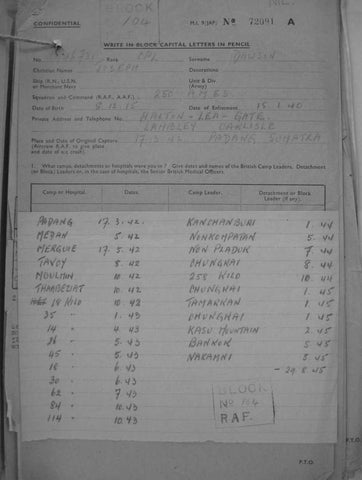 BLOCK
/04
NIL.
CONFIDENTIAL
M.I. 9/JAP/ No 72091 A
WRITE IN BLOCK CAPITAL LETTERS IN PENCIL
No. Rank CPL Surname DAWSON
Christian Names JOSEPH Decorations
Ship (R.N., U.S.N. or Merchant Navy) Unit & Div. (Army)
Squadron and Command (R.A.F., A.A.F.) 250 A.M.E.S.
Date of Birth 8.12.15 Date of Enlistment 15.1.40
Private Address and Telephone Number HALTON-LEA-GATE
LAMBLEY CARLISLE
Place and Date of Original Capture 17.3.42 PADANG SUMATRA
(Airborne R.A.F. to give place and date of a/c crash).
1. What camps, detachments or hospitals were you in? Give dates and names of the British Camp Leaders, Detachment
(or Block) Leaders or, in the case of hospitals, the Senior British Medical Officers.
Camp or Hospital. Dates. Camp Leader. Detachment or Block Leader (if any).
PADANG 17.3.42 KANCHANBURI 1.44
MEDAN 5.42 NONKOMPATAN 5.44
MERGUIE 17.5.42 NON PLADUK 7.44
TAVOY 8.42 CHUNGKAI 8.44
MOULMIN 10.42 258 KILO 10.44
THAMBEZAT 10.42 CHUNGHAI 1.45
18 KILO 10.42 TAMARKAN 1.45
35 " 1.43 CHUNGHAI 1.45
14 " 4.43 KASU MOUNTAIN 2.45
26 " 5.43 BANNOK 5.45
45 " 5.43 NAKAMNI 5.45
18 " 6.43 - 29.8.45
30 " 6.43
62 " 7.43
84 " 10.43
114 " 10.43
BLOCK
No 104
RAF.
P.T.O.
P.T.O.